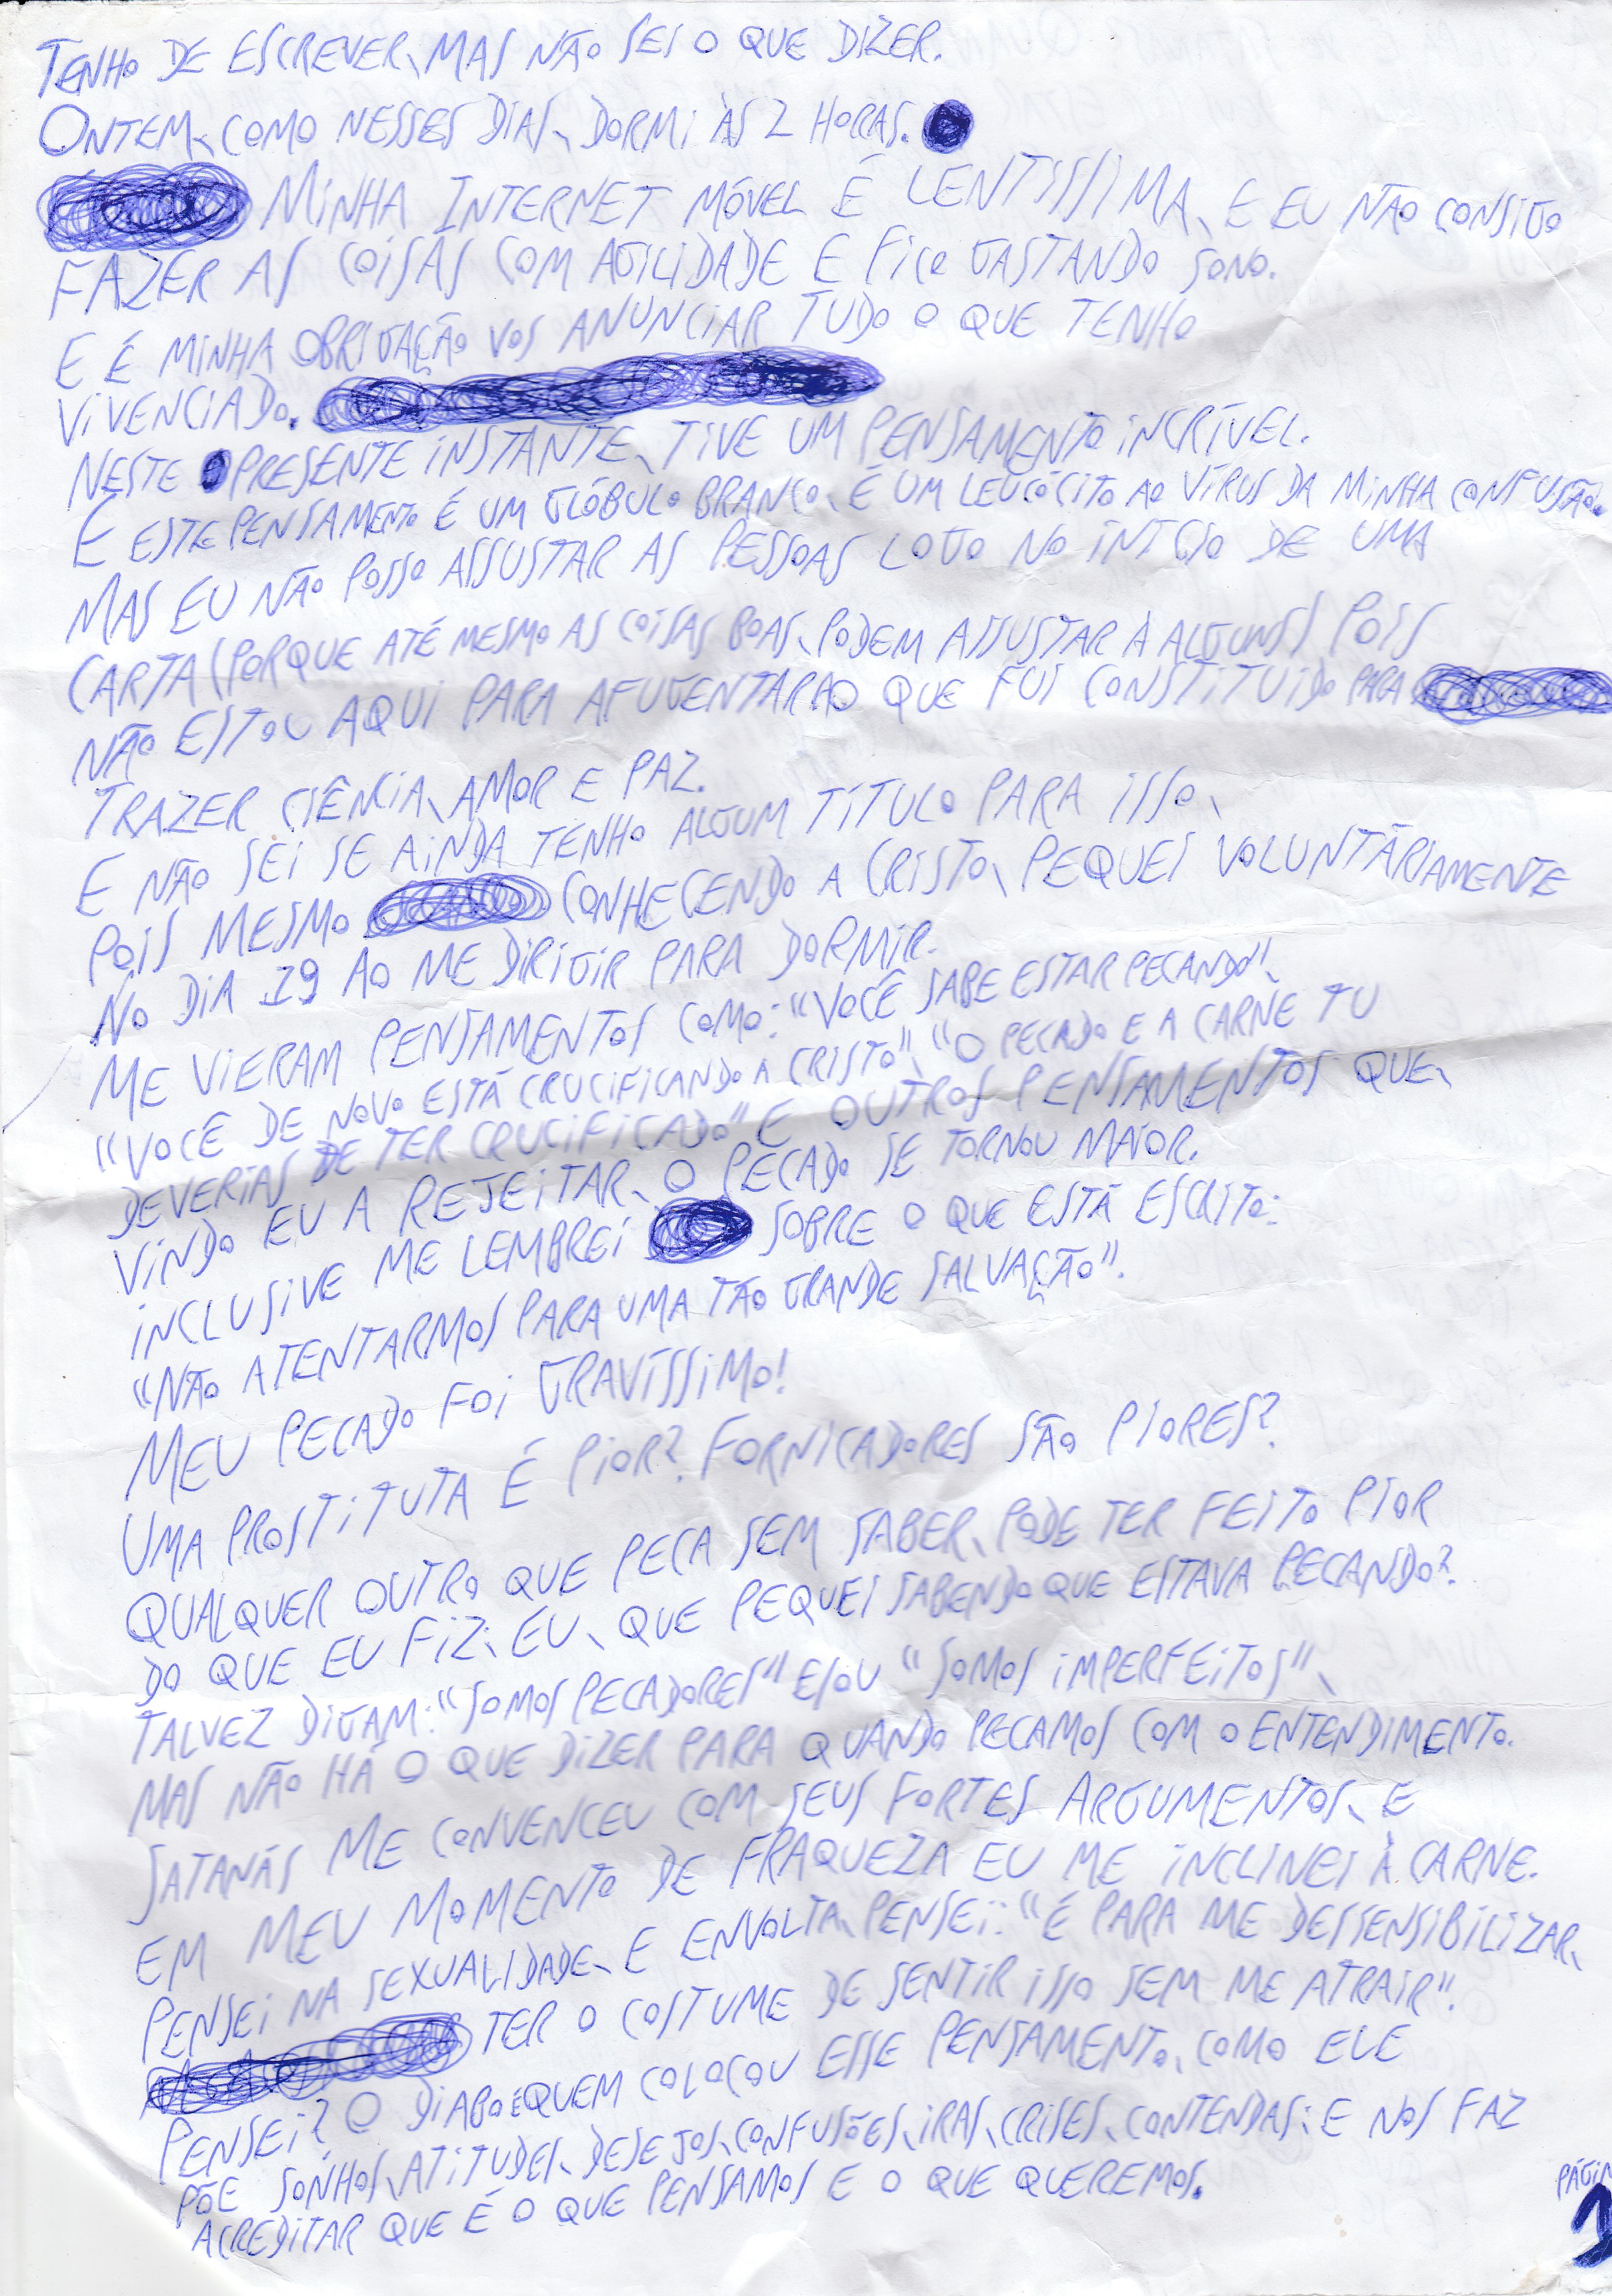 TENHO DE ESCREVER, MAS NÃO SEI O QUE DIZER.
ONTEM, COMO NESSES DIAS, DORMI ÀS 2 HORAS.
MINHA INTERNET MÓVEL É LENTISSIMA, E EU NÃO CONSIGO
FAZER AS COISAS COM AGILIDADE E FICO GASTANDO SONO.
E É MINHA OBRIGAÇÃO VOS ANUNCIAR TUDO O QUE TENHO
VIVENCIADO.
NESTE PRESENTE INSTANTE, TIVE UM PENSAMENTO INCRÍVEL.
E ESTE PENSAMENTO É UM GLÓBULO BRANCO, É UM LEUCÓCITO AO VÍRUS DA MINHA CONFUSÃO.
MAS EU NÃO POSSO ASSUSTAR AS PESSOAS LOGO NO INÍCIO DE UMA
CARTA (PORQUE ATÉ MESMO AS COISAS BOAS, PODEM ASSUSTAR À ALGUNS) POIS
NÃO ESTOU AQUI PARA AFUGENTAR AO QUE FUI CONSTITUIDO PARA
TRAZER CIÊNCIA, AMOR E PAZ.
E NÃO SEI SE AINDA TENHO ALGUM TÍTULO PARA ISSO,
POIS MESMO CONHECENDO A CRISTO, PEQUEI VOLUNTÁRIAMENTE
NO DIA 19 AO ME DIRIGIR PARA DORMIR.
ME VIERAM PENSAMENTOS COMO: "VOCÊ SABE ESTAR PECANDO",
"VOCÊ DE NOVO ESTÁ CRUCIFICANDO A CRISTO", "O PECADO E A CARNE TU
DEVERIAS DE TER CRUCIFICADO" E OUTROS PENSAMENTOS QUE,
VINDO EU A REJEITAR, O PECADO SE TORNOU MAIOR.
INCLUSIVE ME LEMBREI SOBRE O QUE ESTÁ ESCRITO:
"NÃO ATENTARMOS PARA UMA TÃO GRANDE SALVAÇÃO".
MEU PECADO FOI GRAVÍSSIMO!
UMA PROSTITUTA É PIOR?. FORNICADORES SÃO PIORES?
QUALQUER OUTRO QUE PECA SEM SABER, PODE TER FEITO PIOR
DO QUE EU FIZ, EU, QUE PEQUEI SABENDO QUE ESTAVA PECANDO?.
TALVEZ DIGAM: "SOMOS PECADORES" E/OU "SOMOS IMPERFEITOS",
MAS NÃO HÁ O QUE DIZER PARA QUANDO PECAMOS COM O ENTENDIMENTO.
SATANÁS ME CONVENCEU COM SEUS FORTES ARGUMENTOS, E
EM MEU MOMENTO DE FRAQUEZA EU ME INCLINEI À CARNE.
PENSEI NA SEXUALIDADE, E ENVOLTA, PENSEI: "É PARA ME DESSENSIBILIZAR,
TER O COSTUME DE SENTIR ISSO SEM ME ATRAIR".
PENSEI? O DIABO É QUEM COLOCOU ESSE PENSAMENTO, COMO ELE
PÕE SONHOS, ATITUDES, DESEJOS, CONFUSÕES, IRAS, CRISES, CONTENDAS; E NOS FAZ
ACREDITAR QUE É O QUE PENSAMOS E O QUE QUEREMOS.
1